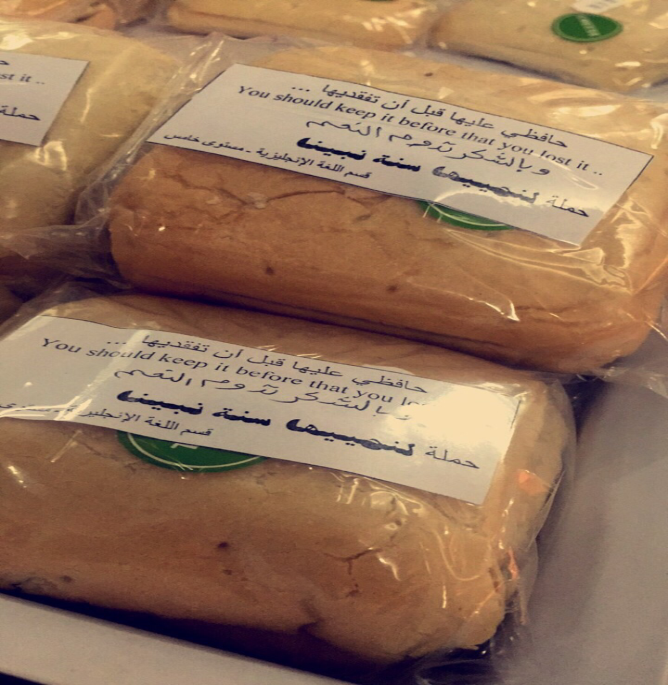 st it ..
حملة
حافظي عليها قبل أن تفقديها ...
You should keep it before that you lost it ..
وبالشكر تدوم النعم
حملة لنحييها سنة نبينا
قسم اللغة الإنجليزية - مستوى خامس
حافظي عليها قبل أن تفقديها ...
You should keep it before that you lo
بالشكر تدوم النعم
حملة لنحييها سنة نبينا
قسم اللغة الإنجليز